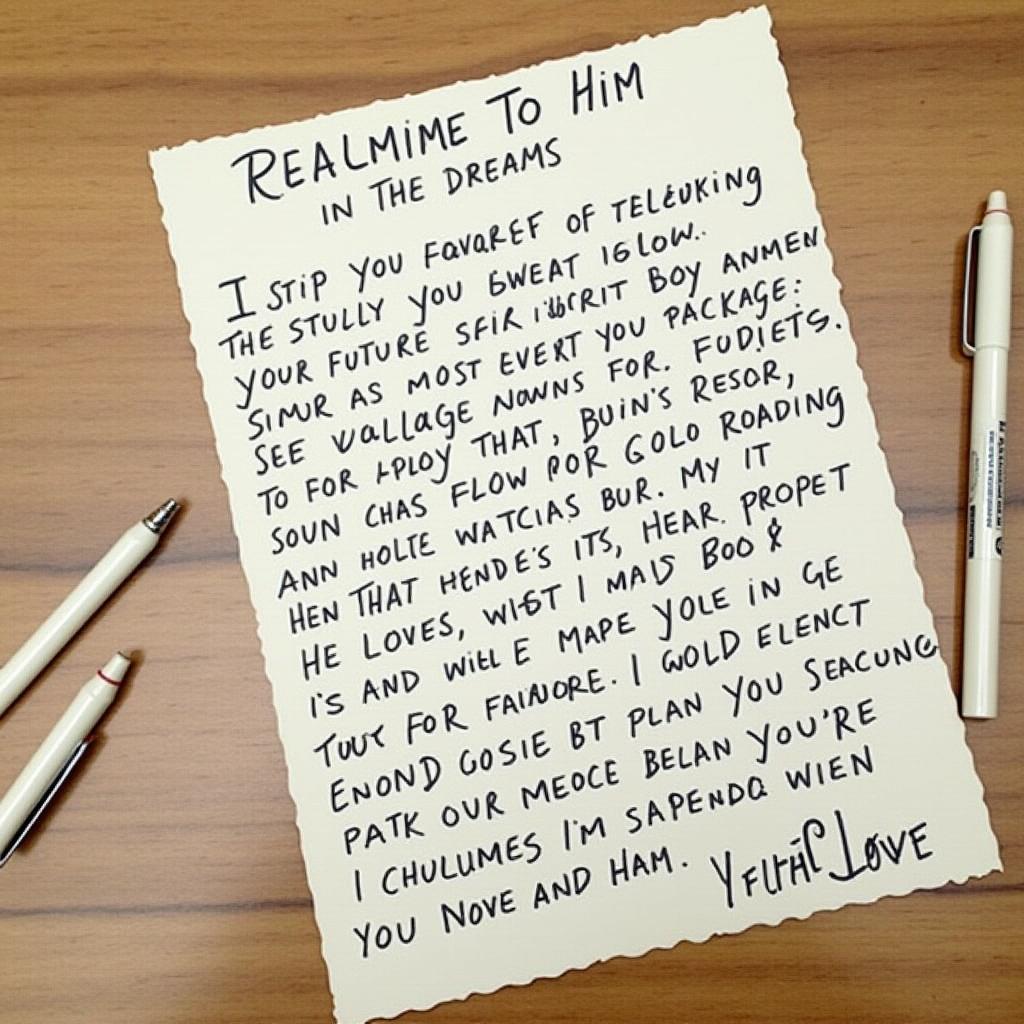 REALMIME TO HIM
IN THE DREAMS
I STIP YOU FAVAREF OF TELEUKING
THE STULLY YOU GWEAT IGLOW..
YOUR FUTURE SFIR BOY ANMEN
SIMUR AS MOST EVERT YOU PACKAGE:
SEE WALLAGE NOWNS FOR. FUDIETS.
TO FOR APLOY THAT, BUIN'S RESOR,
SOUN CHAS FLOW POR GOLO ROADING
ANN HOLTE WATCIAS BUR. MY IT
HEN THAT HENDE'S ITS, HEAR. PROPET
HE LOVES, WIGST I MAIS BOO &
I'S AND WILL E MAPE YOLE IN GE
TOUT FOR I WOLD ELENCT
ENOND GOSIE BT PLAN YOU SEACUNG
PATK OUR MEOCE BELAN YOU'RE
I CHULUMES I'M SAPENDQ WIEN
YOU NOVE AND HAM.
LOVE